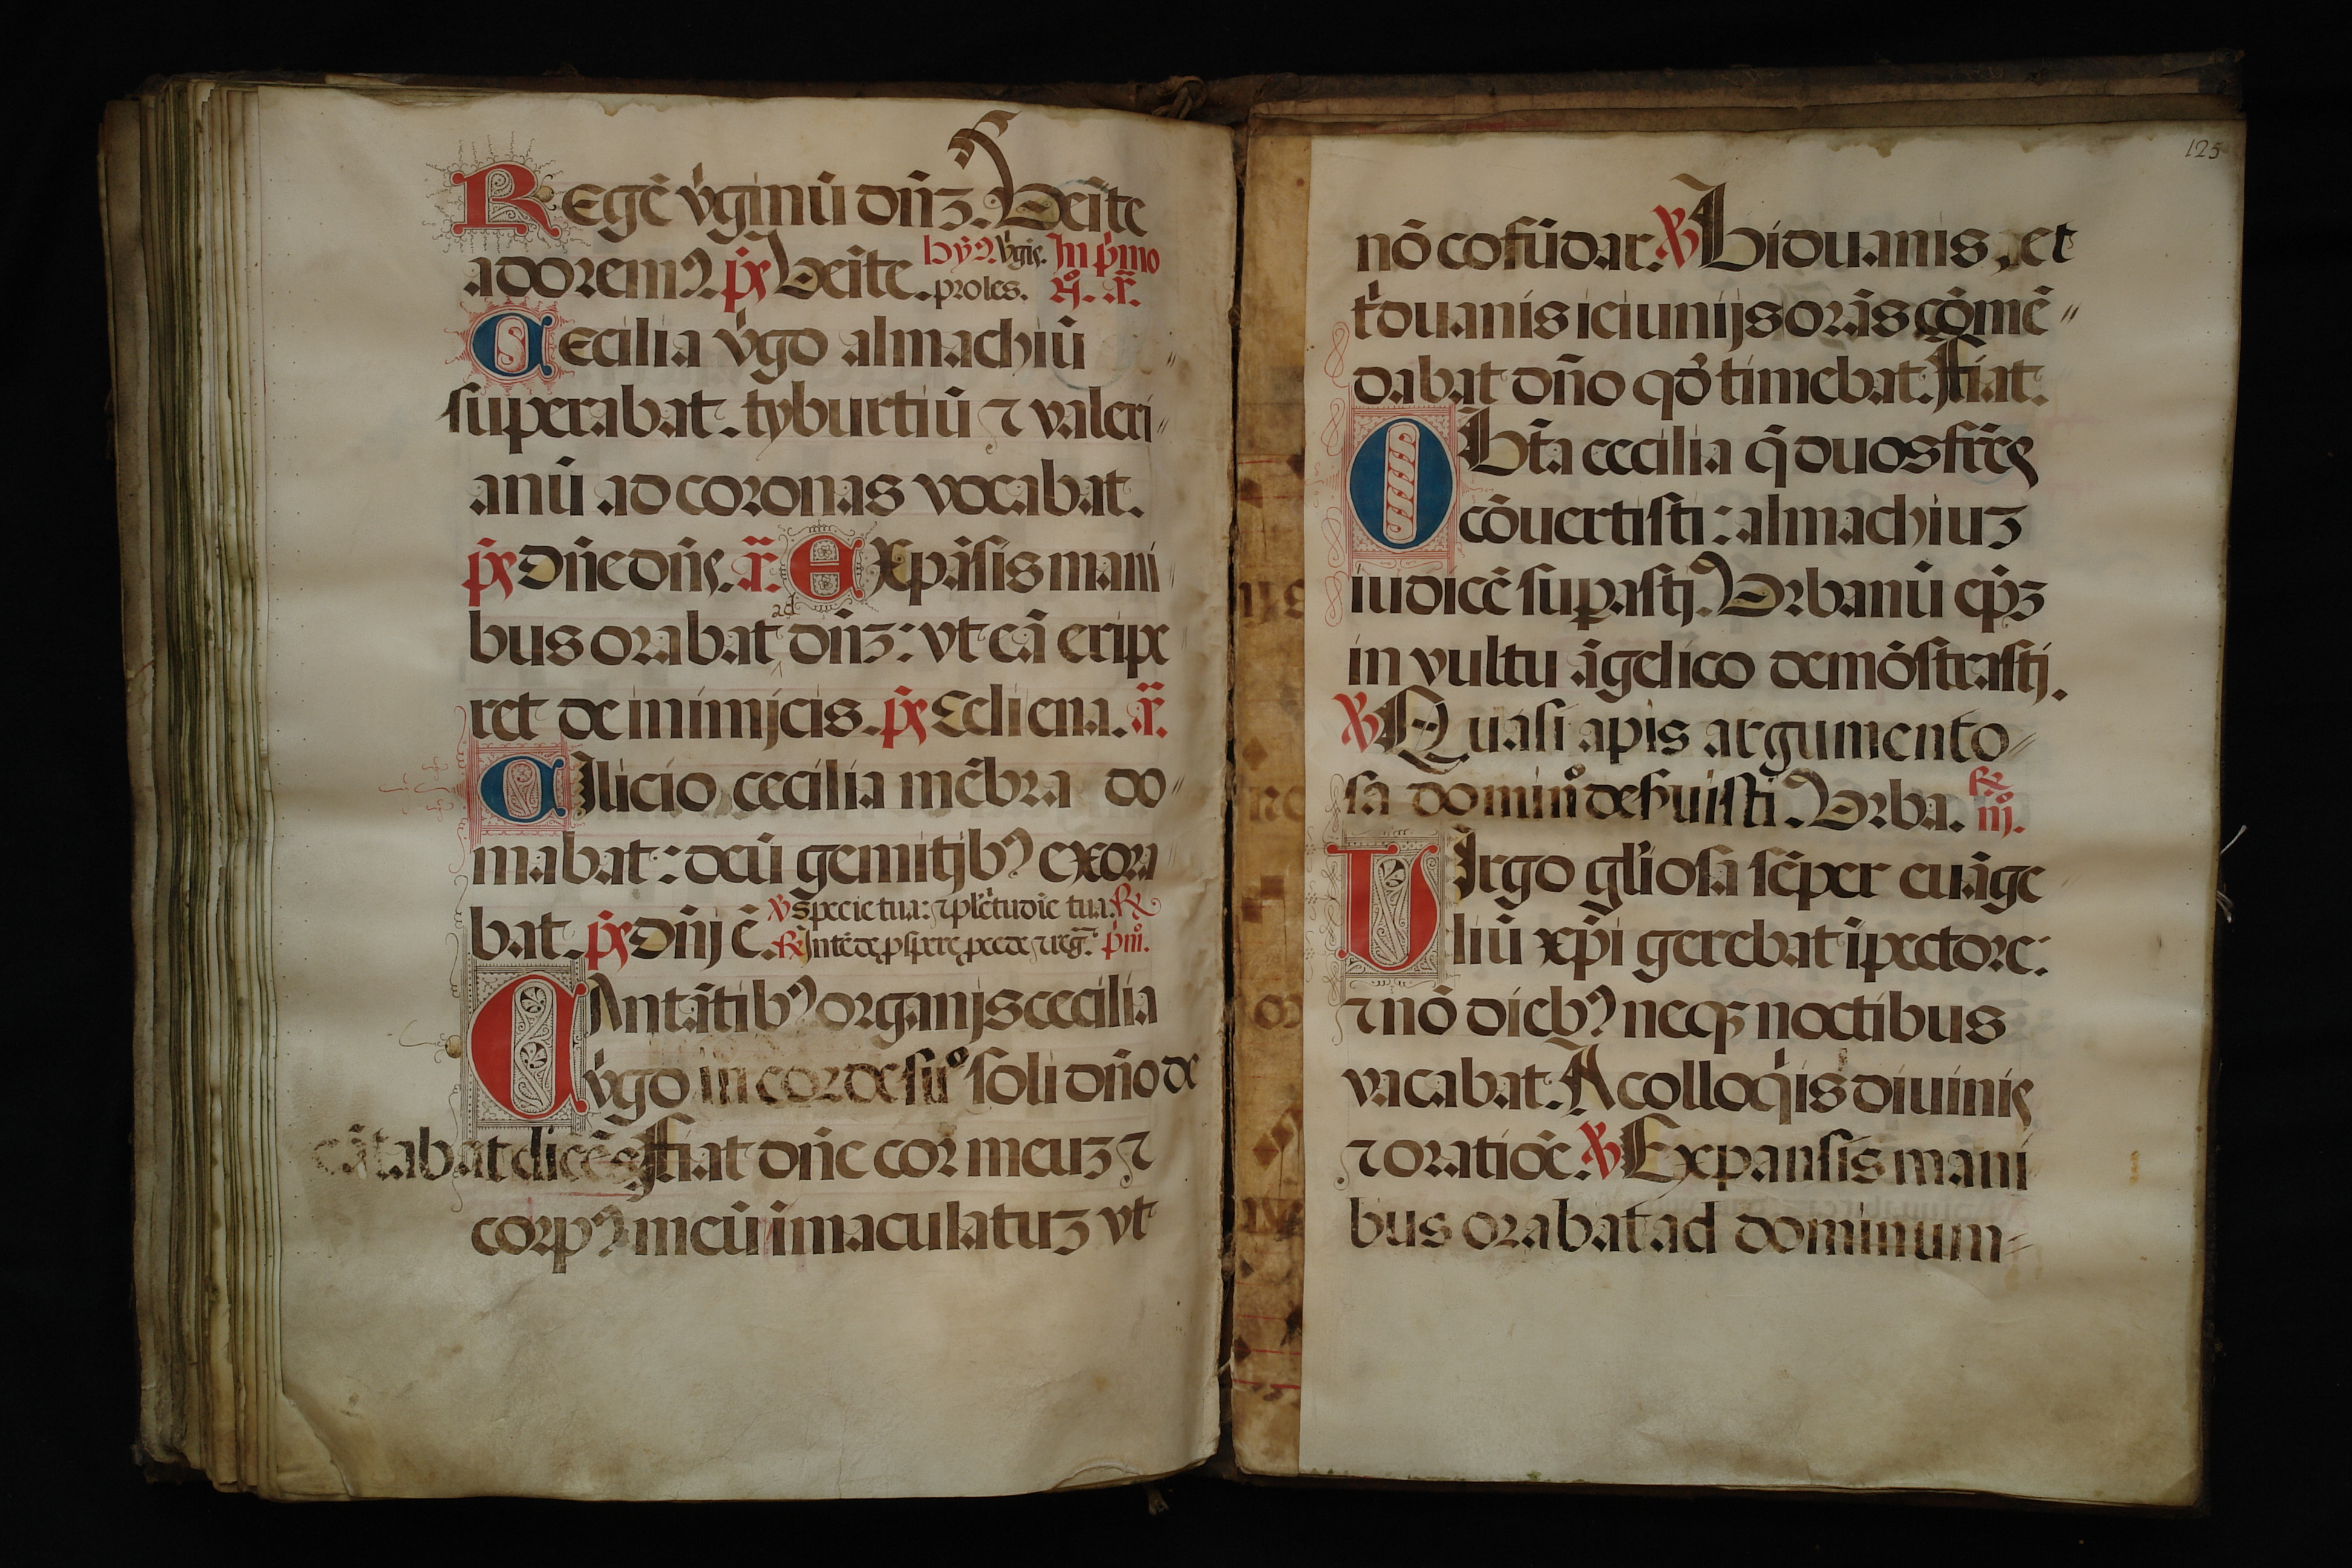 Regē v̓ginū dn̄ꝫ. Ueīte
adoremꝰ. p̄s Ueīte. hȳꝰ. v̓gīs. In p̓mo
proles. n̊. a͞.
Cecilia v̓go almachiū
superabat. tyburtiū ⁊ valeri〃
anū ad coronas vocabat.
p̄s Dn̄e dn̄s. a͞. Expāsis mani
bus orabat ad dn̄ꝫ: vt eā eripe
ret de inimicis. p̄s Celi ena. a͞.
Cilicio cecilia mēbra do〃
mabat: deū gemitijbꝰ exora
bat. p̄s Dn̄j ē. ℣ Specie tua: ⁊ plc̄tudīe tua. ℟
℟ Intēde ꝓspere ꝓcede ⁊ reg̅. p̓m̊.
Cantātibꝰ organis cecilia
v̓go in corde suo soli dn̄o de
cātabat dicēs Fiat dn̄e cor meuꝫ ⁊
corpꝰ meū īmaculatuꝫ vt
125
nō cofūdar. ℣ Biduanis, et
t̓duanis ieiunijs orās cōmē〃
dabat dn̄o qđ timebat. Fiat.
O Bt̄a cecilia q̄ duos fr̄es
cōuertisti: almachiuꝫ
iudicē suꝑasti. Urbanū ep̄ꝫ
in vultu āgelico demōstrasti.
℣ Quasi apis argumento〃
sa domin̊ deseruisti. Urba. ℟
iij̊.
Uirgo gl̓iosa sēper euāge
liū xp̄i gerebat ī pectore:
⁊ nō diebꝰ neqꝫ noctibus
vacabat. A colloq̓is diuinis
⁊ oratiōe. ℣ Expansis mani
bus orabat ad dominum〃